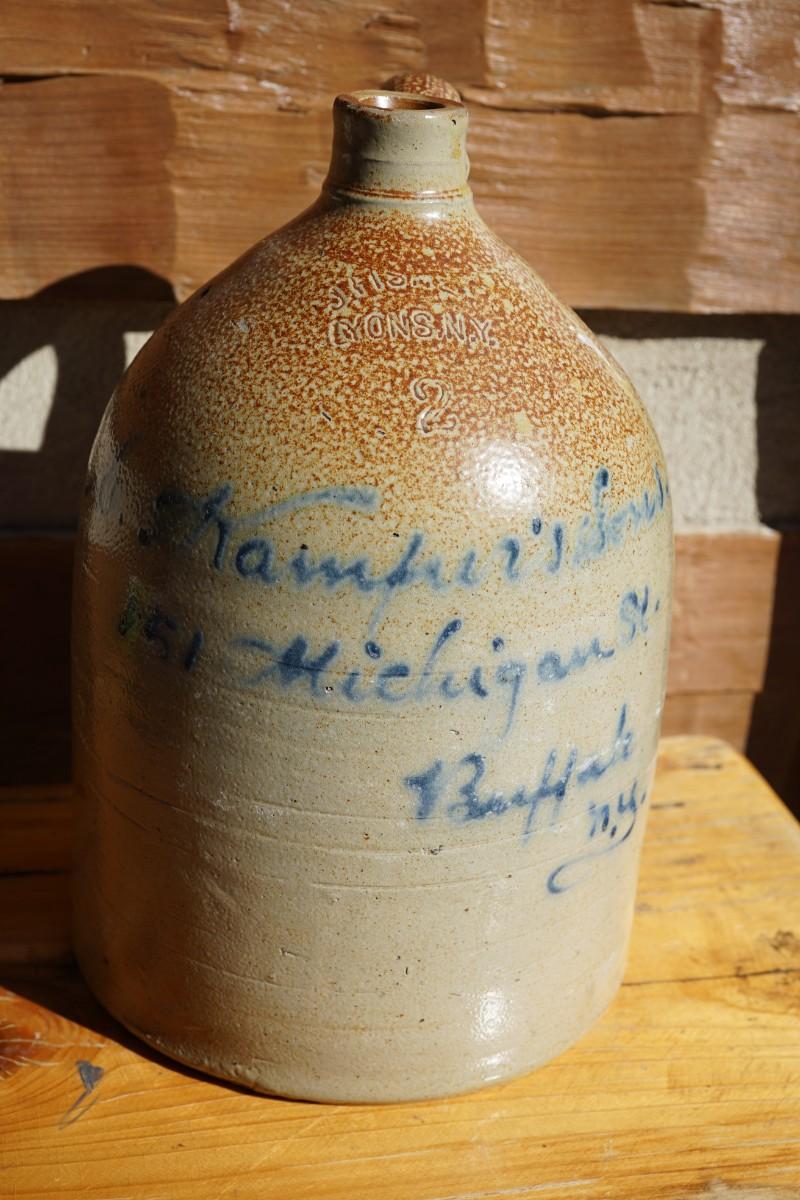 LYONS.N.Y.
2
Kampur's Sons.
151 Michigan St.
Buffalo
N.Y.